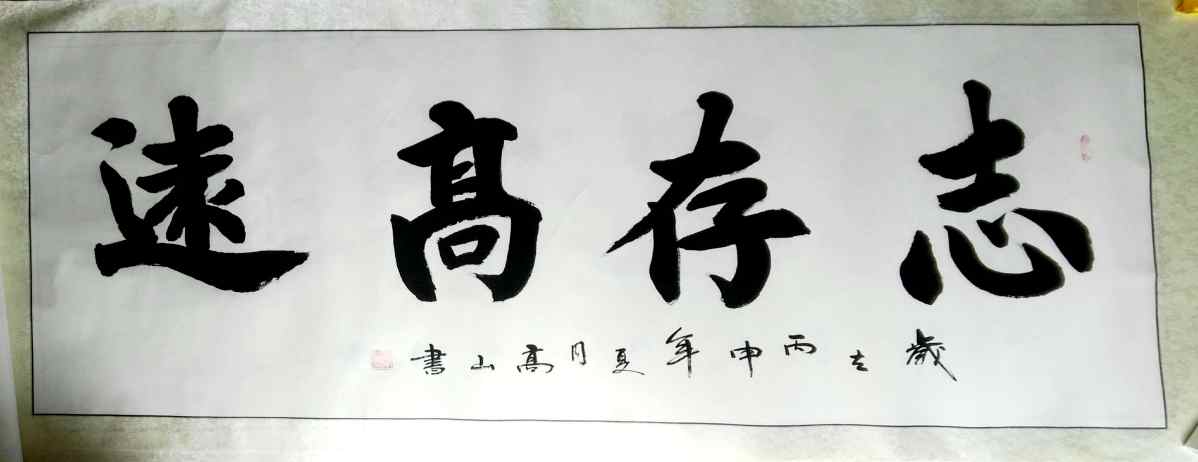 志存高遠
歲在丙申年夏月高山書